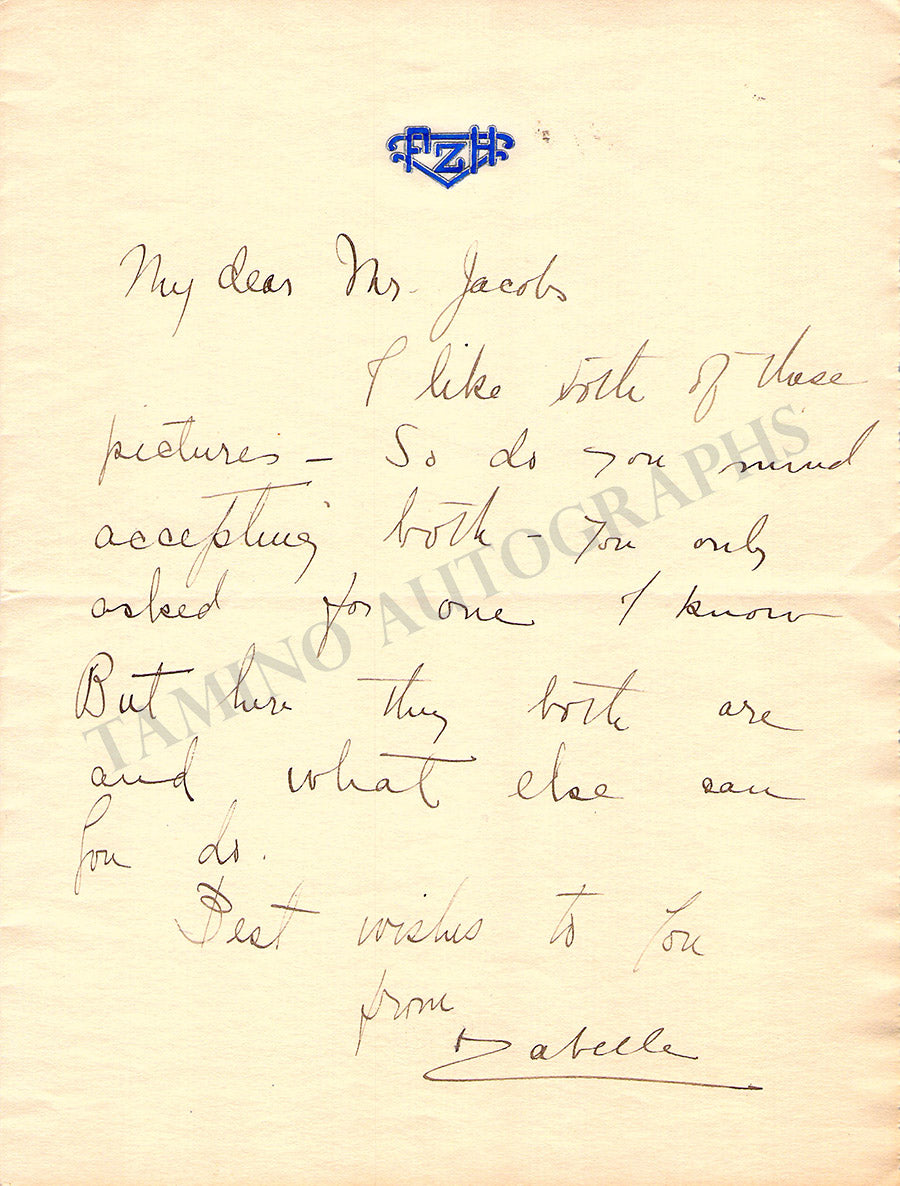 My dear Mr. Jacobs
I like both of these
pictures – So do you mind
accepting both – You only
asked for one I know
But here they both are
and what else can
you do.
Best wishes to you
from
Zabelle
TAMINO AUTOGRAPHS